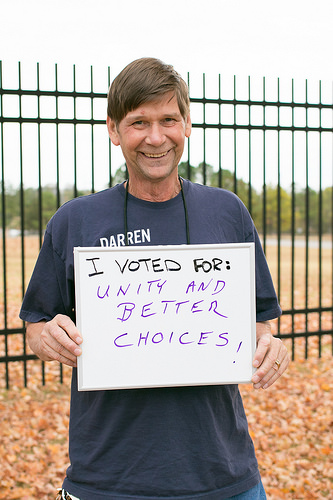 DARREN
I VOTED FOR:
UNITY AND
BETTER
CHOICES!